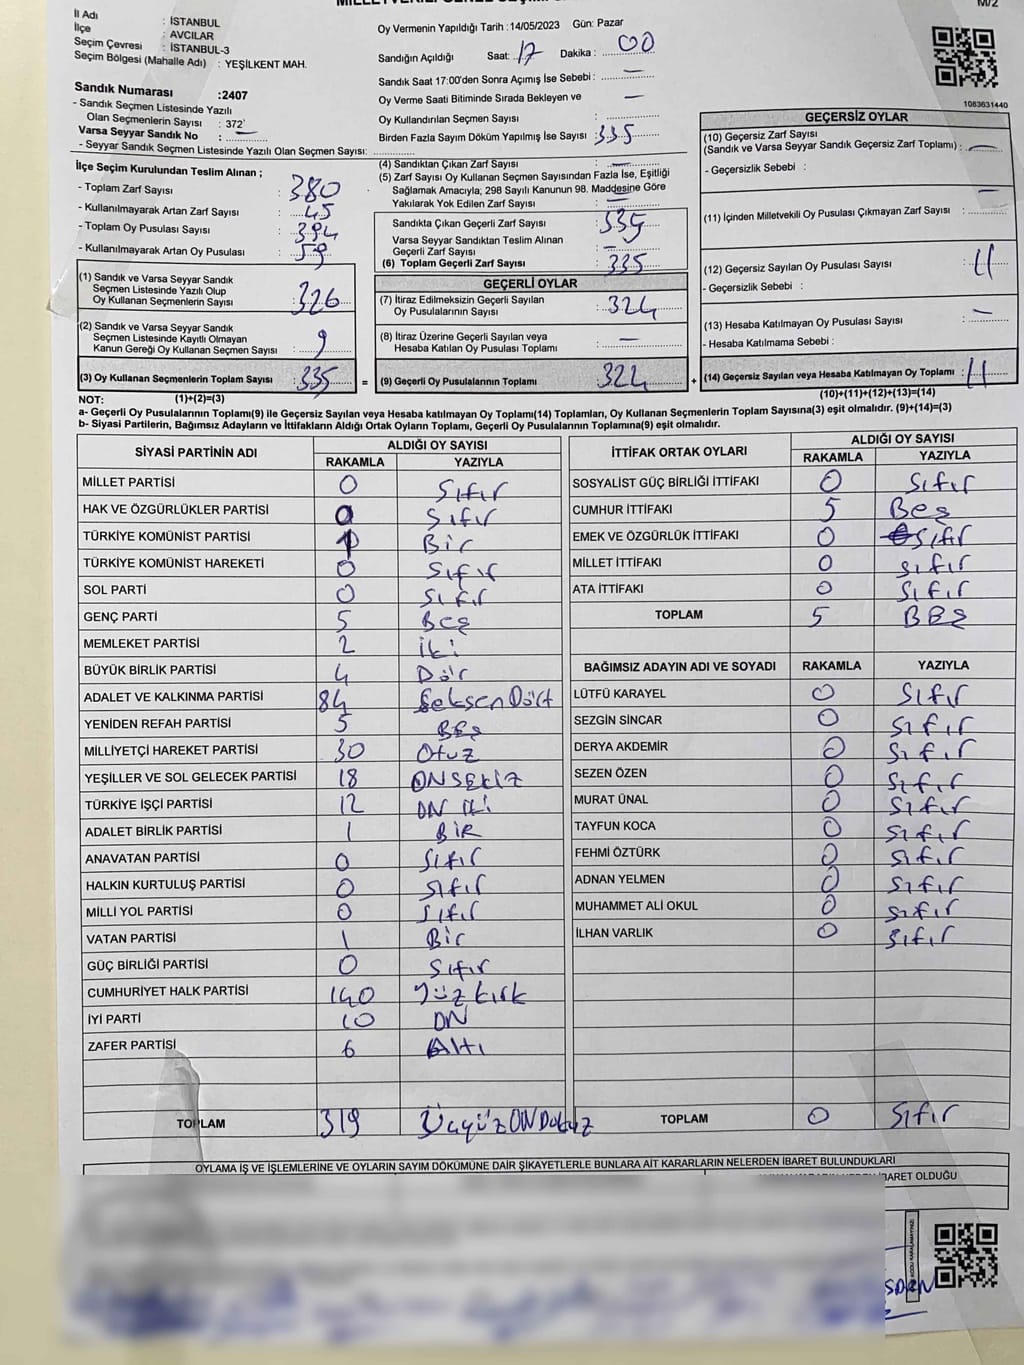 M/2
İl Adı : İSTANBUL
İlçe : AVCILAR
Seçim Çevresi : İSTANBUL-3
Seçim Bölgesi (Mahalle Adı) : YEŞİLKENT MAH.
Sandık Numarası :2407
- Sandık Seçmen Listesinde Yazılı
Olan Seçmenlerin Sayısı : 372
Varsa Seyyar Sandık No : —
- Seyyar Sandık Seçmen Listesinde Yazılı Olan Seçmen Sayısı:
Oy Vermenin Yapıldığı Tarih : 14/05/2023 Gün: Pazar
Sandığın Açıldığı Saat: 17 Dakika : 00
Sandık Saat 17:00'den Sonra Açımış İse Sebebi : —
Oy Verme Saati Bitiminde Sırada Bekleyen ve —
Oy Kullandırılan Seçmen Sayısı :
Birden Fazla Sayım Döküm Yapılmış İse Sayısı : 335
1083631440
İlçe Seçim Kurulundan Teslim Alınan ;
- Toplam Zarf Sayısı : 380
- Kullanılmayarak Artan Zarf Sayısı : 45
- Toplam Oy Pusulası Sayısı : 394
- Kullanılmayarak Artan Oy Pusulası : 59
(1) Sandık ve Varsa Seyyar Sandık
Seçmen Listesinde Yazılı Olup
Oy Kullanan Seçmenlerin Sayısı : 326
(2) Sandık ve Varsa Seyyar Sandık
Seçmen Listesinde Kayıtlı Olmayan
Kanun Gereği Oy Kullanan Seçmen Sayısı : 9
(3) Oy Kullanan Seçmenlerin Toplam Sayısı : 335
(4) Sandıktan Çıkan Zarf Sayısı : —
(5) Zarf Sayısı Oy Kullanan Seçmen Sayısından Fazla İse, Eşitliği
Sağlamak Amacıyla; 298 Sayılı Kanunun 98. Maddesine Göre
Yakılarak Yok Edilen Zarf Sayısı : —
Sandıkta Çıkan Geçerli Zarf Sayısı : 335
Varsa Seyyar Sandıktan Teslim Alınan
Geçerli Zarf Sayısı : —
(6) Toplam Geçerli Zarf Sayısı : 335
GEÇERLİ OYLAR
(7) İtiraz Edilmeksizin Geçerli Sayılan
Oy Pusulalarının Sayısı : 324
(8) İtiraz Üzerine Geçerli Sayılan veya
Hesaba Katılan Oy Pusulası Toplamı : —
= (9) Geçerli Oy Pusulalarının Toplamı 324 +
GEÇERSİZ OYLAR
(10) Geçersiz Zarf Sayısı
(Sandık ve Varsa Seyyar Sandık Geçersiz Zarf Toplamı) : —
- Geçersizlik Sebebi :
(11) İçinden Milletvekili Oy Pusulası Çıkmayan Zarf Sayısı : —
(12) Geçersiz Sayılan Oy Pusulası Sayısı : 11
- Geçersizlik Sebebi :
(13) Hesaba Katılmayan Oy Pusulası Sayısı : —
- Hesaba Katılmama Sebebi :
(14) Geçersiz Sayılan veya Hesaba Katılmayan Oy Toplamı : 11
NOT: (1)+(2)=(3) (10)+(11)+(12)+(13)=(14)
a- Geçerli Oy Pusulalarının Toplamı(9) ile Geçersiz Sayılan veya Hesaba katılmayan Oy Toplamı(14) Toplamları, Oy Kullanan Seçmenlerin Toplam Sayısına(3) eşit olmalıdır. (9)+(14)=(3)
b- Siyasi Partilerin, Bağımsız Adayların ve İttifakların Aldığı Ortak Oyların Toplamı, Geçerli Oy Pusulalarının Toplamına(9) eşit olmalıdır.
SİYASİ PARTİNİN ADI ALDIĞI OY SAYISI
RAKAMLA YAZIYLA
MİLLET PARTİSİ 0 Sıfır
HAK VE ÖZGÜRLÜKLER PARTİSİ 0 Sıfır
TÜRKİYE KOMÜNİST PARTİSİ 1 Bir
TÜRKİYE KOMÜNİST HAREKETİ 0 Sıfır
SOL PARTİ 0 Sıfır
GENÇ PARTİ 5 Beş
MEMLEKET PARTİSİ 2 İki
BÜYÜK BİRLİK PARTİSİ 4 Dör
ADALET VE KALKINMA PARTİSİ 84 SeksenDört
YENİDEN REFAH PARTİSİ 5 Beş
MİLLİYETÇİ HAREKET PARTİSİ 30 Otuz
YEŞİLLER VE SOL GELECEK PARTİSİ 18 ONSEKİZ
TÜRKİYE İŞÇİ PARTİSİ 12 ON İKİ
ADALET BİRLİK PARTİSİ 1 BİR
ANAVATAN PARTİSİ 0 Sıfır
HALKIN KURTULUŞ PARTİSİ 0 Sıfır
MİLLİ YOL PARTİSİ 0 Sıfır
VATAN PARTİSİ 1 Bir
GÜÇ BİRLİĞİ PARTİSİ 0 Sıfır
CUMHURİYET HALK PARTİSİ 140 Yüz kırk
İYİ PARTİ 10 ON
ZAFER PARTİSİ 6 Altı
TOPLAM 319 ÜçyüzONDokuz
İTTİFAK ORTAK OYLARI ALDIĞI OY SAYISI
RAKAMLA YAZIYLA
SOSYALİST GÜÇ BİRLİĞİ İTTİFAKI 0 Sıfır
CUMHUR İTTİFAKI 5 Beş
EMEK VE ÖZGÜRLÜK İTTİFAKI 0 Sıfır
MİLLET İTTİFAKI 0 Sıfır
ATA İTTİFAKI 0 Sıfır
TOPLAM 5 BEŞ
BAĞIMSIZ ADAYIN ADI VE SOYADI RAKAMLA YAZIYLA
LÜTFÜ KARAYEL 0 Sıfır
SEZGİN SİNCAR 0 Sıfır
DERYA AKDEMİR 0 Sıfır
SEZEN ÖZEN 0 Sıfır
MURAT ÜNAL 0 Sıfır
TAYFUN KOCA 0 Sıfır
FEHMİ ÖZTÜRK 0 Sıfır
ADNAN YELMEN 0 Sıfır
MUHAMMET ALİ OKUL 0 Sıfır
İLHAN VARLIK 0 Sıfır
TOPLAM 0 Sıfır
OYLAMA İŞ VE İŞLEMLERİNE VE OYLARIN SAYIM DÖKÜMÜNE DAİR ŞİKAYETLERLE BUNLARA AİT KARARLARIN NELERDEN İBARET BULUNDUKLARI
İBARET OLDUĞU